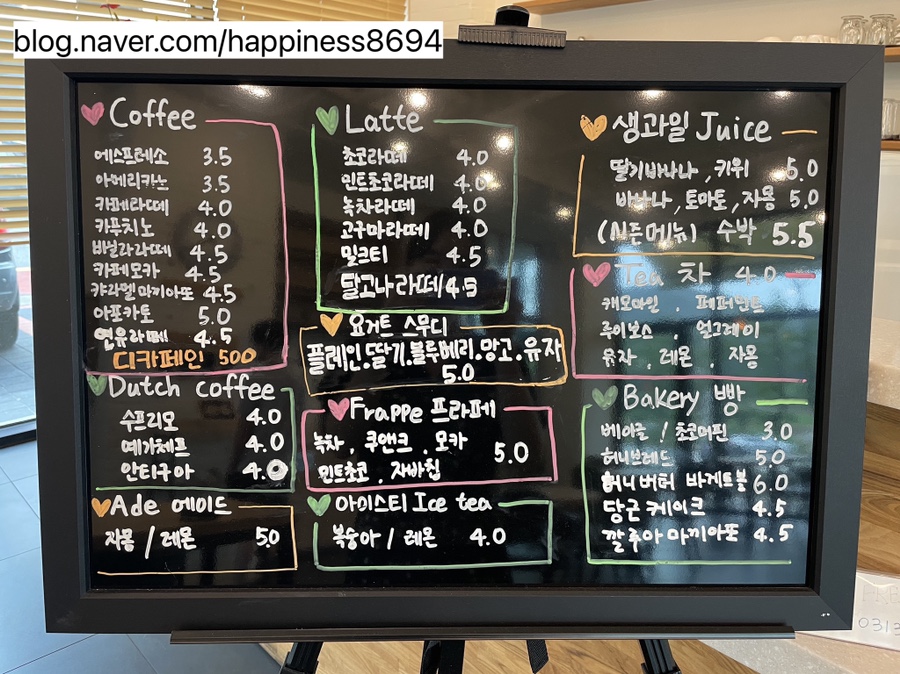 blog.naver.com/happiness8694
Coffee
에스프레소 3.5
아메리카노 3.5
카페라떼 4.0
카푸치노 4.0
바닐라라떼 4.5
카페모카 4.5
캬라멜마끼아또 4.5
아포카토 5.0
연유라떼 4.5
디카페인 500
Dutch coffee
수프리모 4.0
예가체프 4.0
안티구아 4.0
Ade 에이드
자몽 / 레몬 5.0
Latte
초코라떼 4.0
민트초코라떼 4.0
녹차라떼 4.0
고구마라떼 4.0
밀크티 4.5
달고나라떼 4.5
요거트 스무디
플레인.딸기.블루베리.망고.유자
5.0
Frappe 프라페
녹차 , 쿠앤크 , 모카
민트초코 , 자바칩 5.0
아이스티 Ice tea
복숭아 / 레몬 4.0
생과일 Juice
딸기바나나 , 키위 5.0
바나나 , 토마토 , 자몽 5.0
(시즌메뉴) 수박 5.5
Tea 차 4.0
캐모마일 . 페퍼민트
루이보스 . 얼그레이
유자 . 레몬 . 자몽
Bakery 빵
베이글 / 초코머핀 3.0
허니브레드 5.0
허니버터 바게트볼 6.0
당근케이크 4.5
깔루아 마끼아또 4.5
0313